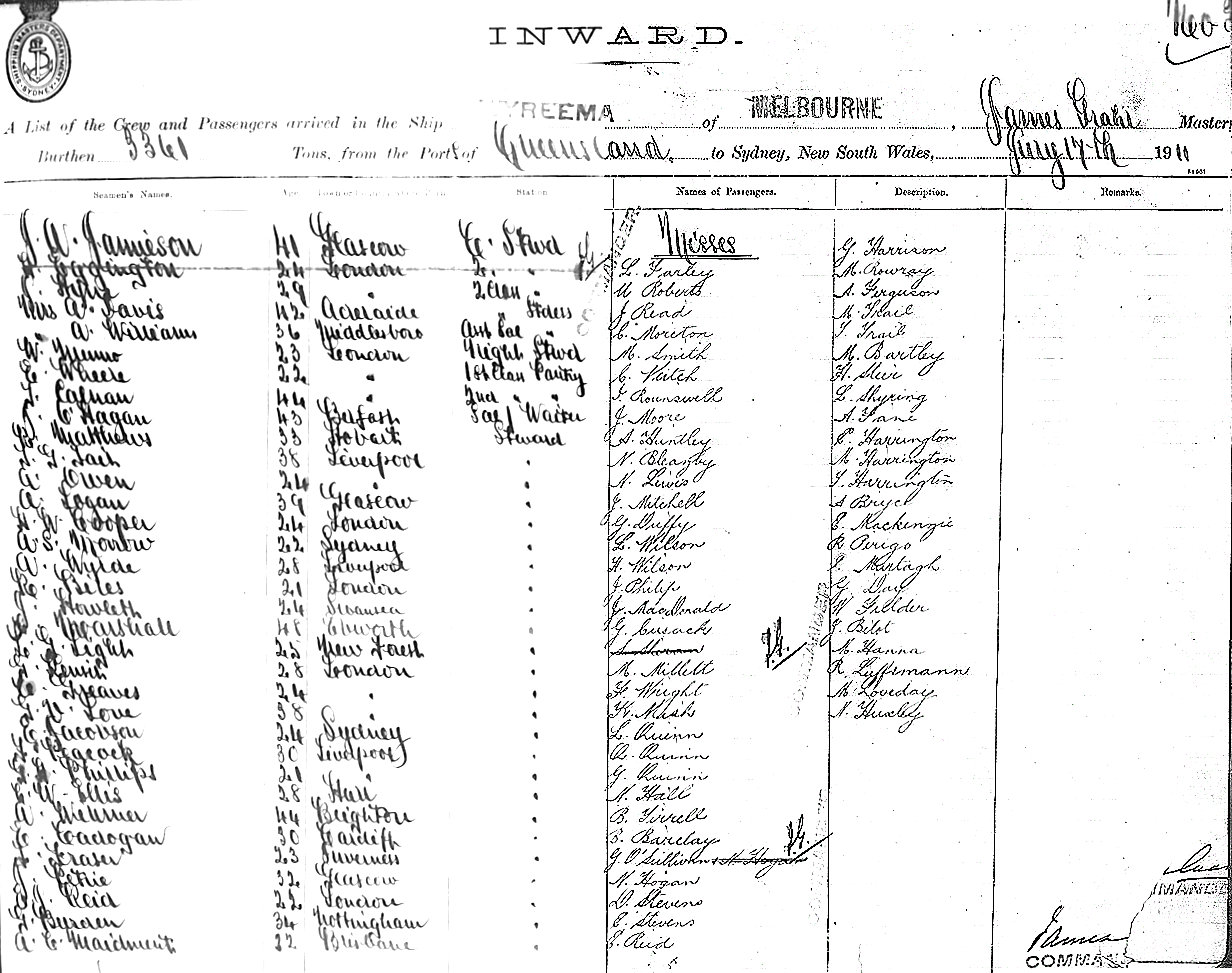 INWARD.
SHIPPING MASTERS DEPARTMENT SYDNEY
A List of the Crew and Passengers arrived in the Ship YREEMA of MELBOURNE, James Master,
Burthen 3361 Tons, from the Port of Queensland, to Sydney, New South Wales, 17th 1911
Seamen's Names. Age Station Names of Passengers. Description. Remarks.
J. W. Jamieson 41 Glascow C. Stwd Misses G. Harrison
24 London 2. " L. Farley M. Rowray
29 " 2 Class " M Roberts A. Ferguson
Miss A. Davis 42 Adelaide " J Read M. Trail
A. Williams 36 Middlesboro C. Moreton T. Trail
W. Munro 23 London Night Stwd M. Smith M. Bartley
22 " 1st Class Pantry C. Veitch H. Steir
44 " 2nd " " F Rounswell L. Skyring
C Hagan 43 Belfast Sal / Waiter J. Moore A Lane
Matthews 33 Hobart Steward A. Huntley E. Harrington
38 Liverpool " N. Bleazby M. Harrington
Owen 24 " N. Lewis T. Harrington
Logan 39 Glascow " J. Mitchell A Bryce
Cooper 24 London " G. Duffy E. Mackenzie
Morrow 22 Sydney " L. Wilson R Perigo
Wylde 28 Liverpool " H. Wilson Murtagh
Beles 21 London " J. Philip G. Day
Howlett 24 Swansea " J. MacDonald W Fielder
Marshall 48 " G. Cusack J. Bilot
Light 25 New Forest " M. Hanna
Lewis 28 London " M. Millett R. Luffsmann
Greaves 24 " " F. Wright M. Loveday
Love 38 " K. Mash N. Huxley
Jacobson 24 Sydney " L. Quinn
Peacock 30 Liverpool " Quinn
Phillips 21 " " G. Quinn
W. Ellis 28 Hull " N. Hall
44 Brighton " B. Tirrell
Cadogan 30 Cardiff " B. Barclay
Fraser 23 Inverness " G. O'Sullivan
Petrie 32 Glascow " N. Hogan
Reid 22 London " D. Stevens
Burden 34 Nottingham " E. Stevens
A. E. Maidment 22 Brisbane " E. Reid
James
COMMAN